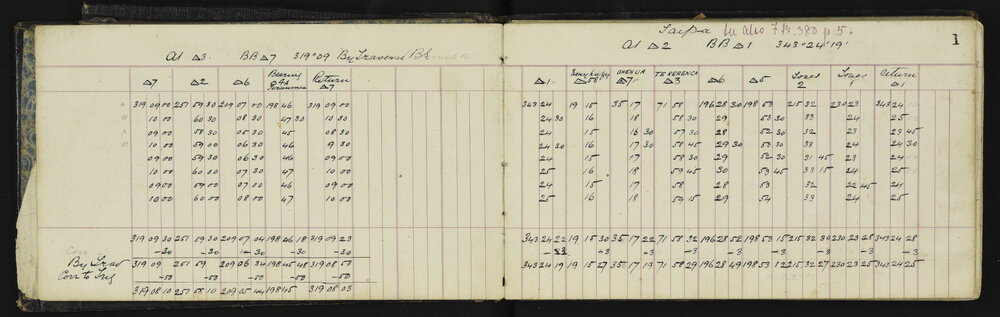 At △3 BB △7 319°09 By Traverse
△7 △2 △6 Bearing Return △7
319 09 00 257 59 30 209 07 00 198 46 319 09 00
10 00 60 30 08 30 47 30 10 30
09 00 58 30 05 30 45 08 30
10 00 59 00 06 30 46 9 30
09 00 59 30 06 30 46 09 00
10 00 60 00 07 30 47 10 00
09 00 59 00 07 00 46 09 00
10 00 60 00 08 00 47 10 00
319 09 30 257 59 30 209 07 04 198 46 18 319 09 23
Corr -30 -30 -30 -30 -30
By Trav 319 09 257 59 209 06 34 198 45 48 319 08 53
Corr to Trig -50 -50 -50 -50
319 08 10 257 58 10 209 05 44 198 45 319 08 03
1
Taipa See also 7B. 380 p. 5.
At △2 BB △1 343°24'19"
△1 △7 TE RERENGA △3 △6 △5 Jones 2 Jones Return △1
343 24 19 15 35 17 71 58 196 28 30 198 53 215 32 230 23 343 24
24 30 16 18 58 30 29 53 30 33 24 25
24 15 16 30 57 30 28 52 30 32 23 23 45
24 30 16 17 30 58 45 29 30 53 30 33 24 24 30
24 15 17 58 30 29 52 30 31 45 23 24
25 16 18 59 45 30 53 45 33 15 24 25
24 15 17 58 28 53 32 22 45 24
25 16 18 59 15 29 54 33 24 25
343 24 22 19 15 30 35 17 22 71 58 32 196 28 52 198 53 15 215 32 30 230 23 28 343 24 28
-3 -3 -3 -3 -3 -3 -3 -3 -3
343 24 19 19 15 27 35 17 19 71 58 29 196 28 49 198 53 12 215 32 27 230 23 25 343 24 25